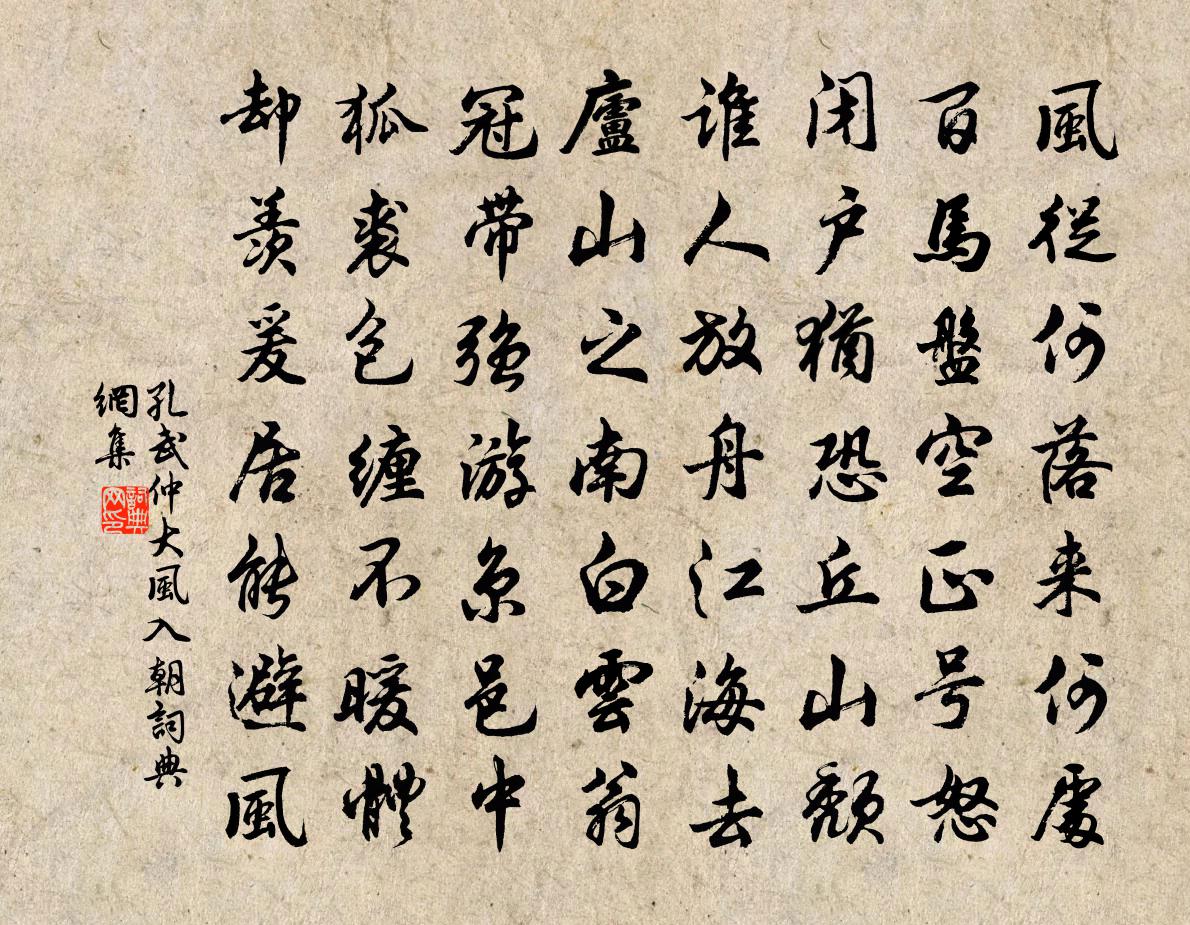 風從何落来何處
百馬盤空正号怒
闭户猶恐丘山頹
誰人放舟江海去
廬山之南白雲翁
冠帶强游京邑中
狐裘包缠不暖體
却羨爰居能避風
孔武仲大風入朝詞典
網集
詞典
网印